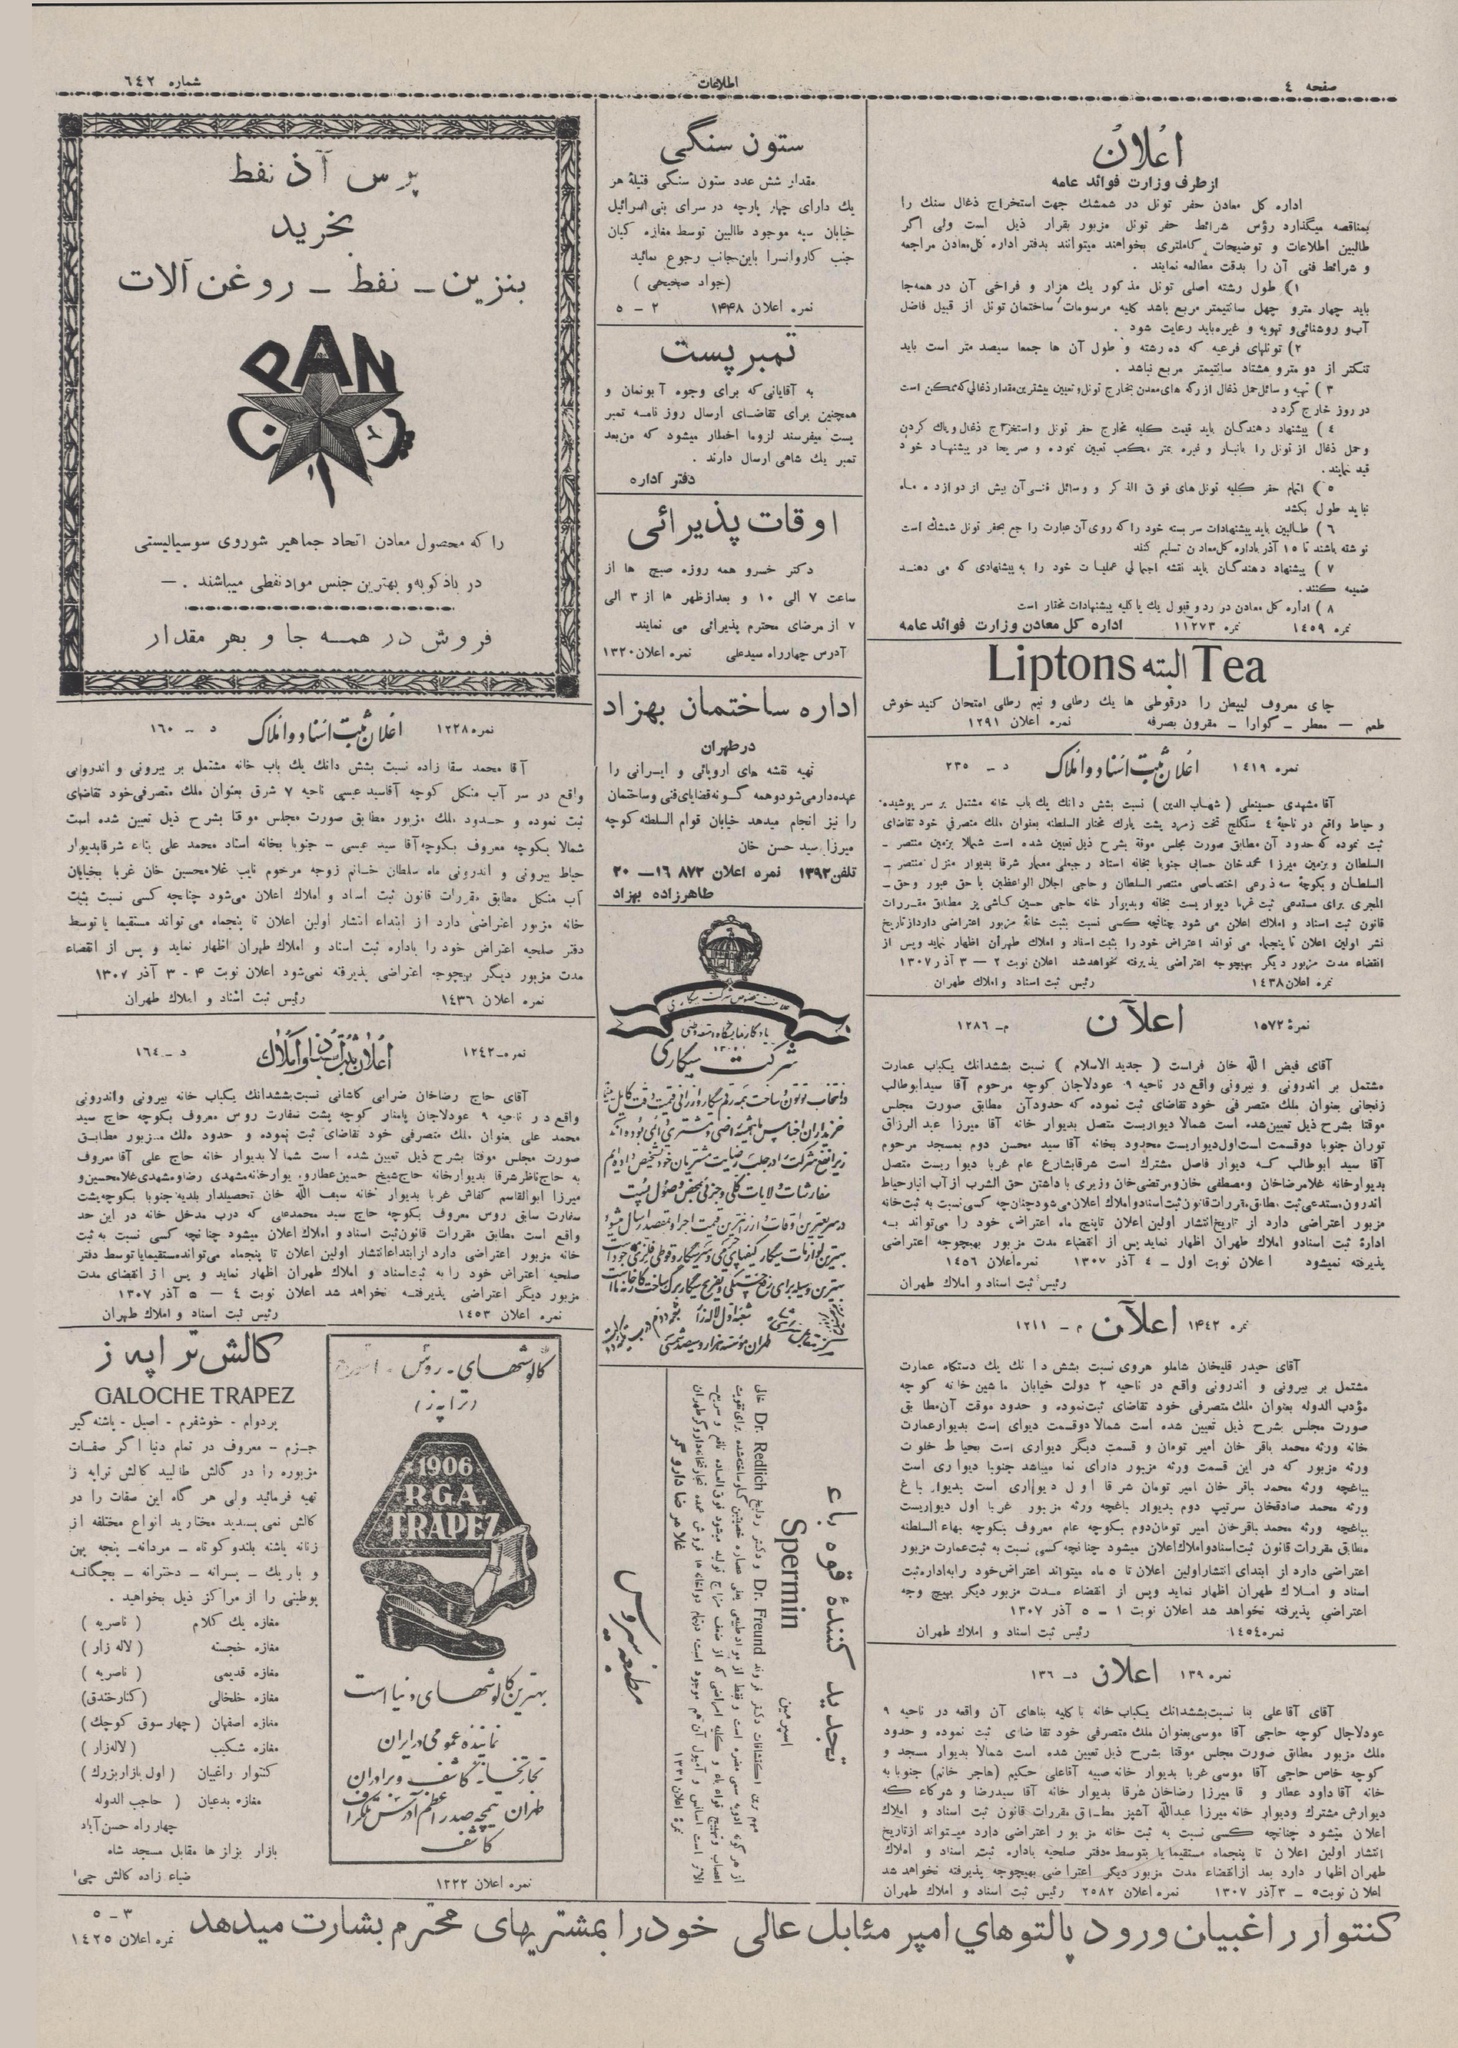 صفحه ٤
اطلاعات
شماره ٦٤٢
اعلان
از طرف وزارت فوائد عامه
اداره کل معادن حفر تونل در شمشک جهت استخراج ذغال سنك را
بمناقصه میگذارد رؤس شرائط حفر تونل مزبور بقرار ذیل است ولی اگر
طالبین اطلاعات و توضیحات کاملتری بخواهند میتوانند بدفتر اداره کل معادن مراجعه
و شرائط فنی آن را بدقت مطالعه نمایند .
١) طول رشته اصلی تونل مذکور یك هزار و فراخی آن در همه جا
باید چهار مترو چهل سانتیمتر مربع باشد کلیه مرسومات ساختمان تونل از قبیل فاضل
آب و روشنائی و تهویه و غیره باید رعایت شود .
٢) تونلهای فرعیه که ده رشته و طول آن ها جمعا سیصد متر است باید
تنکتر از دو مترو هشتاد سانتیمتر مربع نباشد .
٣ ) تهیه وسائل حمل ذغال از رگه های معدن بخارج تونل و تعیین بیشترین مقدار ذغالی که ممکن است
در روز خارج گردد
٤ ) پیشنهاد دهندگان باید قیمت کلیه مخارج حفر تونل و استخراج ذغال و پاك کردن
وحمل ذغال از تونل را بانبار و غیره بمتر مکعب تعیین نموده و صریحا در پیشنهاد خود
قید نمایند .
٥ ) اتمام حفر کلیه تونل های فوق الذکر و وسائل فنی آن بیش از دوازده ماه
نباید طول بکشد
٦ ) طالبین باید پیشنهادات سر بسته خود را که روی آن عبارت راجع بحفر تونل شمشك است
نوشته باشند تا ١٥ آذر باداره کل معادن تسلیم کنند
٧ ) پیشنهاد دهندگان باید نقشه اجمالی عملیات خود را به پیشنهادی که می دهند
ضمیمه کنند .
٨ ) اداره کل معادن در رد و قبول یك یا کلیه پیشنهادات مختار است
نمره ١٤٥٩ نمره ١١٢٧٣ اداره کل معادن وزارت فوائد عامه
Liptons البته Tea
چای معروف لیپطن را درقوطی ها یك رطلی و نیم رطلی امتحان کنید خوش
طعم — معطر — گوارا — مقرون بصرفه نمره اعلان ١٢٩١
نمره ١٤١٩ اعلان ثبت اسناد و املاک د — ٢٣٥
آقا مشهدی حسینعلی ( شهاب الدین ) نسبت بشش دانك یك باب خانه مشتمل بر سر پوشیده
و حیاط واقع در ناحیهٔ ٤ سنگلج تخت زمرد پشت پارك مختار السلطنه بعنوان ملك متصرفی خود تقاضای
ثبت نموده که حدود آن مطابق صورت مجلس موقة بشرح ذیل تعیین شده است شمالا بزمین منتصر -
السلطان و بزمین میرزا محمدخان حسابی جنوبا بخانه استاد رجبعلی معمار شرقا بدیوار منزل منتصر -
السلطان و بکوچهٔ سه ذرعی اختصاصی منتصر السلطان و حاجی اجلال الواعظین یا حق عبور و حق -
المجری برای مستدعی ثبت غربا دیوار یست بخانه و بدیوار خانه حاجی حسین کاشی پز مطابق مقررات
قانون ثبت اسناد و املاك اعلان می شود چنانچه کسی نسبت بثبت خانهٔ مزبور اعتراضی دارد از تاریخ
نشر اولین اعلان تا پنجماه می تواند اعتراض خود را بثبت اسناد و املاك طهران اظهار نماید و پس از
انقضاء مدت مزبور دیگر بهیچوجه اعتراضی پذیرفته نخواهد شد اعلان نوبت ٢ — ٣ آذر ١٣٠٧
نمره اعلان ١٤٣٨ رئیس ثبت اسناد و املاك طهران
نمره ١٥٧٢ اعلان م- ١٢٨٦
آقای فیض الله خان فراست ( جدید الاسلام ) نسبت بششدانك یکباب عمارت
مشتمل بر اندرونی و بیرونی واقع در ناحیه ٩ عودلاجان کوچه مرحوم آقا سید ابوطالب
زنجانی بعنوان ملك متصرفی خود تقاضای ثبت نموده که حدود آن مطابق صورت مجلس
موقتا بشرح ذیل تعیین شده است شمالا دیواریست متصل بدیوار خانه آقا میرزا عبد الرزاق
توران جنوبا دوقسمت است اول دیواریست محدود بخانه آقا سید محسن دوم بمسجد مرحوم
آقا سید ابوطالب که دیوار فاصل مشترك است شرقا بشارع عام غربا دیواریست متصل
بدیوار خانه غلامرضاخان و مصطفی خان و مرتضی خان وزیری با داشتن حق الشرب از آب انبار حیاط
اندرون مستدعی ثبت مطابق مقررات قانون ثبت اسناد و املاك اعلان می شود چنانچه کسی نسبت به ثبت خانه
مزبور اعتراضی دارد از تاریخ انتشار اولین اعلان تا پنج ماه اعتراض خود را می تواند به
ادارهٔ ثبت اسناد و املاك طهران اظهار نماید پس از انقضاء مدت مزبور بهیچوجه اعتراضی
پذیرفته نمیشود اعلان نوبت اول - ٤ آذر ١٣٠٧ نمره اعلان ١٤٥٦
رئیس ثبت اسناد و املاك طهران
نمره ١٤٤٢ اعلان م - ١٢١١
آقای حیدر قلیخان شاملو هروی نسبت بشش دانك یك دستگاه عمارت
مشتمل بر بیرونی و اندرونی واقع در ناحیه ٢ دولت خیابان ماشین خانه کوچه
مؤدب الدوله بعنوان ملك متصرفی خود تقاضای ثبت نموده و حدود موقت آن مطابق
صورت مجلس بشرح ذیل تعیین شده است شمالا دوقسمت دیواری است بدیوار عمارت
خانه ورثه محمد باقر خان امیر تومان و قسمت دیگر دیواری است بحیاط خلوت
ورثه مزبور که در این قسمت ورثه مزبور دارای نما میباشد جنوبا دیواری است
بباغچه ورثه محمد باقر خان امیر تومان شرقا اول دیواری است بدیوار باغ
ورثه محمد صادقخان سرتیپ دوم بدیوار باغچه ورثه مزبور غربا اول دیواریست
بباغچه ورثه محمد باقر خان امیر تومان دوم بکوچه عام معروف بکوچه بهاء السلطنه
مطابق مقررات قانون ثبت اسناد و املاك اعلان میشود چنانچه کسی نسبت به ثبت عمارت مزبور
اعتراضی دارد از ابتدای انتشار اولین اعلان تا ٥ ماه میتواند اعتراض خود را به اداره ثبت
اسناد و املاك طهران اظهار نماید و پس از انقضاء مدت مزبور دیگر بهیچ وجه
اعتراضی پذیرفته نخواهد شد اعلان نوبت ١ — ٥ آذر ١٣٠٧
نمره ١٤٥٤ رئیس ثبت اسناد و املاك طهران
نمره ١٣٩ اعلان د- ١٣٦
آقای آقا علی بنا نسبت بششدانك یکباب خانه با کلیه بناهای آن واقعه در ناحیه ٩
عودلاجان کوچه حاجی آقا موسی بعنوان ملك متصرفی خود تقاضای ثبت نموده و حدود
ملك مزبور مطابق صورت مجلس موقتا بشرح ذیل تعیین شده است شمالا بدیوار مسجد و
کوچه خاص حاجی آقا موسی غربا بدیوار خانه صبیه آقا علی حکیم (هاجر خانم) جنوبا به
خانه آقا داود عطار و قا میرزا رضاخان شرقا بدیوار خانه آقا سید رضا و شرکاء که
دیوارش مشترك ودیوار خانه میرزا عبدالله آشپز مطابق مقررات قانون ثبت اسناد و املاك
اعلان میشود چنانچه کسی نسبت به ثبت خانه مزبور اعتراضی دارد میتواند از تاریخ
انتشار اولین اعلان تا پنجماه مستقیما یا بتوسط دفتر صلحیه باداره ثبت اسناد و املاك
طهران اظهار دارد بعد از انقضاء مدت مزبور دیگر اعتراضی بهیچوجه پذیرفته نخواهد شد
اعلان نوبت ٥ - ٣ آذر ١٣٠٧ نمره اعلان ٢٥٨٢ رئیس ثبت اسناد و املاك طهران
ستون سنگی
مقدار شش عدد ستون سنگی قتیله هر
یك دارای چهار پارچه در سرای بنی اسرائیل
خیابان سپه موجود طالبین توسط مغازه کیان
جنب کاروانسرا باین جانب رجوع نمائید
(جواد صحیحی )
نمره اعلان ١٤٤٨ ٢ — ٥
تمبر پست
به آقایانی که برای وجوه آبونمان و
همچنین برای تقاضای ارسال روز نامه تمبر
پست میفرستد لزوما اخطار میشود که من بعد
تمبر یك شاهی ارسال دارند .
دفتر اداره
اوقات پذیرائی
دکتر خسرو همه روزه صبح ها از
ساعت ٧ الی ١٠ و بعدازظهر ها از ٣ الی
٧ از مرضای محترم پذیرائی می نمایند
آدرس چهارراه سیدعلی نمره اعلان ١٣٢٠
اداره ساختمان بهزاد
در طهران
تهیه نقشه های اروپائی و ایرانی را
عهده دار می شود و همه گونه قضایای فنی و ساختمان
را نیز انجام میدهد خیابان قوام السلطنه کوچه
میرزا سید حسن خان
تلفن ١٣٩٢ نمره اعلان ٨٧٢ ١٦ — ٢٠
طاهرزاده بهزاد
علامت مخصوص شرکت سیگاری
یادگار نمایشگاه امتعه وطنی
١٣٠٠
شرکت سیگاری
تجدید کنندهٔ قوه باء
Spermin
اسپرمین
مهم ترین اکتشافات دکتر فروند Dr. Freund و دکتر ردلیخ Dr. Redlich خالی
از هر گونه ادویه سمی مضره است و فقط از مواد طبیعی یعنی عصاره خصیتین گاو ساخته شده برای تقویت
اعصاب و تهییج قوای باه و کلیه امراضی که از ضعف مزاج تولید میشود فوق العاده نافع و سریع
الاثر است اسانس و آمپول آن هم موجود است درتمام دواخانه ها فروش عمده تجارتخانه داروگر طهران
نمرهٔ اعلان ١٢٣١ غلامرضا داروگر
مطبعه سیروس
پرس آذ نفط
بخرید
بنزین — نفط — روغن آلات
PAN
را که محصول معادن اتحاد جماهیر شوروی سوسیالیستی
در بادکوبه و بهترین جنس مواد نفطی میباشند . —
فروش در همه جا و بهر مقدار
نمره ١٢٢٨ اعلان ثبت اسناد و املاک د — ١٦٠
آقا محمد سقا زاده نسبت بشش دانك یك باب خانه مشتمل بر بیرونی و اندرونی
واقع در سر آب منگل کوچه آقاسید عبسی ناحیه ٧ شرق بعنوان ملك متصرفی خود تقاضای
ثبت نموده و حدود ملك مزبور مطابق صورت مجلس موقتا بشرح ذیل تعیین شده است
شمالا بکوچه معروف بکوچه آقا سید عبسی — جنوبا بخانه استاد محمد علی بناء شرقا بدیوار
حیاط بیرونی و اندرونی ماه سلطان خانم زوجه مرحوم نایب غلامحسین خان غربا بخیابان
آب منگل مطابق مقررات قانون ثبت اسناد و املاك اعلان می شود چنانچه کسی نسبت بثبت
خانه مزبور اعتراضی دارد از ابتداء انتشار اولین اعلان تا پنجماه می تواند مستقیما یا توسط
دفتر صلحیه اعتراض خود را باداره ثبت اسناد و املاك طهران اظهار نماید و پس از انقضاء
مدت مزبور دیگر بهیچوجه اعتراضی پذیرفته نمی شود اعلان نوبت ٤ - ٣ آذر ١٣٠٧
نمره اعلان ١٤٣٦ رئیس ثبت اسناد و املاك طهران
نمره - ١٢٤٢ اعلان ثبت اسناد و املاک د — ١٦٤
آقای حاج رضاخان ضرابی کاشانی نسبت بششدانك یکباب خانه بیرونی واندرونی
واقع در ناحیه ٩ عودلاجان پامنار کوچه پشت سفارت روس معروف بکوچه حاج سید
محمد علی بعنوان ملك متصرفی خود تقاضای ثبت نموده و حدود ملك مزبور مطابق
صورت مجلس موقتا بشرح ذیل تعیین شده است شمالا بدیوار خانه حاج علی آقا معروف
به حاج ناظر شرقا بدیوار خانه حاج شیخ حسین عطار و دیوار خانه مشهدی رضا و مشهدی غلامحسین و
میرزا ابوالقاسم کفاش غربا بدیوار خانه سیف الله خان تحصیلدار بلدیه جنوبا بکوچه پشت
سفارت سابق روس معروف بکوچه حاج سید محمدعلی که درب مدخل خانه در این حد
واقع است مطابق مقررات قانون ثبت اسناد و املاك اعلان میشود چنانچه کسی نسبت به ثبت
خانه مزبور اعتراضی دارد از ابتداء انتشار اولین اعلان تا پنجماه می تواند مستقیما یا توسط دفتر
صلحیه اعتراض خود را به ثبت اسناد و املاك طهران اظهار نماید و پس از انقضای مدت
مزبور دیگر اعتراضی پذیرفته نخواهد شد اعلان نوبت ٤ — ٥ آذر ١٣٠٧
نمره اعلان ١٤٥٣ رئیس ثبت اسناد و املاك طهران
گالوشهای - روش -
(تراپز)
1906
R.G.A.
TRAPEZ
بهترین گالوشهای دنیا است
نماینده عمومی در ایران
تجارتخانه کاشف و برادران
طهران تیمچه صدر اعظم آدرس تلگراف
کاشف
نمره اعلان ١٢٢٢
کالش تراپه ز
GALOCHE TRAPEZ
پردوام - خوشفرم - اصیل - پاشنه گیر
جزم - معروف در تمام دنیا اگر صفات
مزبوره را در گالش طالبید کالش تراپه ز
تهیه فرمائید ولی هر گاه این صفات را در
کالش نمی پسندید مختارید انواع مختلفه از
زنانه پاشنه بلندو کوتاه — مردانه — پنجه پهن
و باریك - پسرانه - دخترانه - بچگانه
پوطینی را از مراکز ذیل بخواهید .
مغازه یك کلام ( ناصریه )
مغازه خجسته ( لاله زار )
مغازه قدیمی ( ناصریه )
مغازه خلخالی (کنارخندق)
مغازه اصفهان (چهارسوق کوچك )
مغازه شکیب (لاله زار )
کنتوار راغبیان (اول بازار بزرك )
مغازه بدعیان ( حاجب الدوله
چهار راه حسن آباد
بازار بزاز ها مقابل مسجد شاه
ضیاء زاده کالش چی
کنتوار راغبیان ورود پالتوهای امپر مئابل عالی خود را بمشتریهای محترم بشارت میدهد
٣ - ٥
نمره اعلان ١٤٢٥